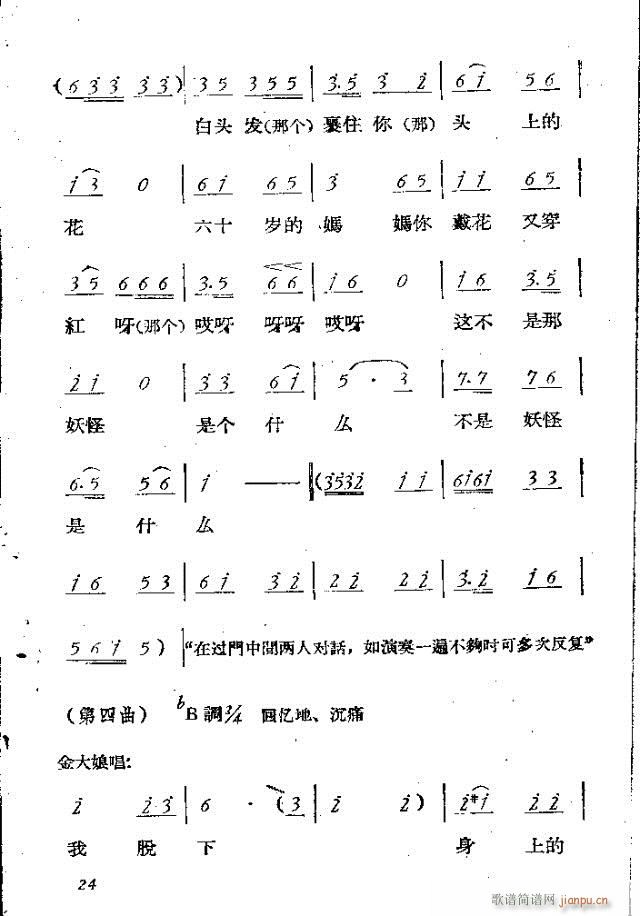 (6 3 3 3 3) | 3 5 3 5 5 | 3·5 3 i | 6 i 5 6 |
白头发(那个)裹住你(那)头 上的
i 3 0 | 6 i 6 5 | 3 6 5 | i i 6 5 |
花 六十 岁的媽 媽你 戴花 又穿
3 5 6 6 6 | 3·5 6 6 | i 6 0 | i 6 3·5 |
紅 呀(那个)哎呀 呀呀哎呀 这不 是那
2 i 0 | 3 3 6 i | 5 · 3 | 7·7 7 6 |
妖怪 是个 什 么 不是 妖怪
6·5 5 6 | i —— | (3532 i i | 6i6i 3 3 |
是 什 么
i 6 5 3 | 6 i 3 2 | 2 2 2 2 | 3·2 i 6 |
5 6 i 5 ) | “在过門中間两人对話，如演奏一遍不夠时可多次反复”
(第四曲) bB調2/4 回忆地、沉痛
金大娘唱：
2 2 3 | 6 · (3 | 2 2 ) | 2 #i 2 2 |
我 脫 下 身 上的
24
歌谱简谱网
jianpu.cn